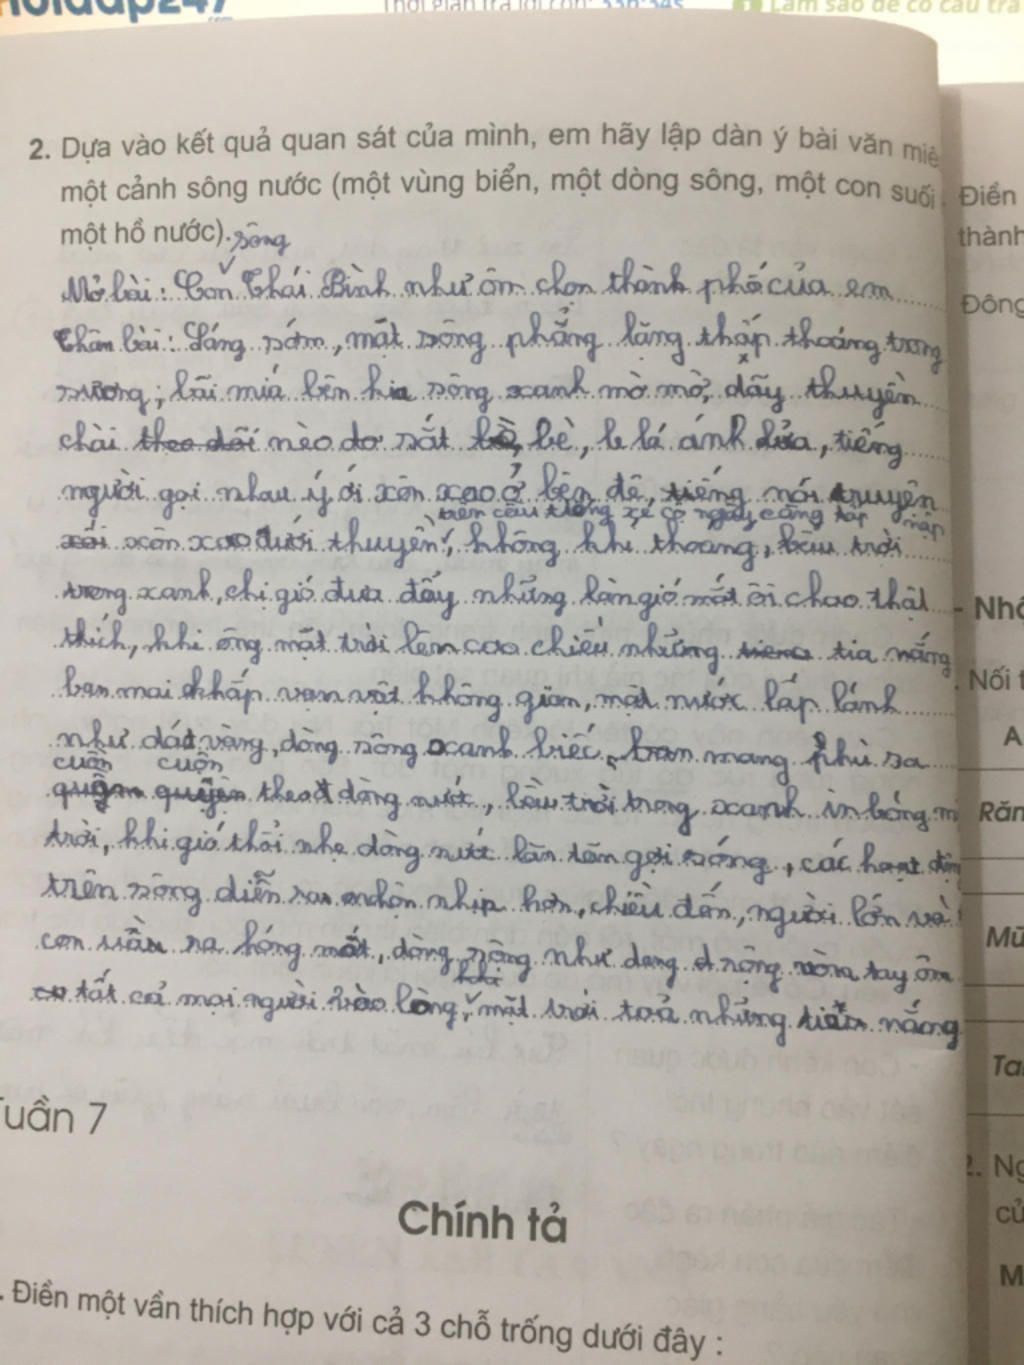 Hoidap247
.com
Thời gian trả lời còn: 33h:34s
Làm sao để có câu trả
2. Dựa vào kết quả quan sát của mình, em hãy lập dàn ý bài văn miê
một cảnh sông nước (một vùng biển, một dòng sông, một con suối
một hồ nước).
sông
Mở bài: Con Thái Bình như ôm chọn thành phố của em
Thân bài: Sáng sớm, mặt sông phẳng lặng thấp thoáng trong
sương, bãi mía bên kia sông xanh mờ mờ, dãy thuyền
chài theo dõi nèo đơ sắt bè, le lá ánh lửa, tiếng
người gọi nhau ý ới xôn xao ở bên đê, tiếng nói truyện
trên cầu tiếng xe cộ ngày càng tấp nập
xôn xao dưới thuyền, không khí thoang, bầu trời
trong xanh, chị gió đưa đẩy những làn gió mát ôi chao thật
thích, khi ông mặt trời lên cao chiếu những tia nắng
ban mai khắp vạn vật không gian, mặt nước lấp lánh
như dát vàng, dòng sông xanh biếc, mang phù sa
cuồn cuộn
theo dòng nước, bầu trời trong xanh in bóng
trời, khi gió thổi nhẹ dòng nước lăn tăn gợi sóng, các hoạt động
trên sông diễn ra nhộn nhịp hơn, chiều đến, người lớn và
con ra hóng mát, dòng sông như dang rộng vòng tay ôm
tất cả mọi người vào lòng, mặt trời toả những nắng
Tuần 7
Chính tả
. Điền một vần thích hợp với cả 3 chỗ trống dưới đây :
Điền
thành
Đông
- Nhó
. Nối t
A
Răn
Mũ
Tai
2. Ng
củ
M